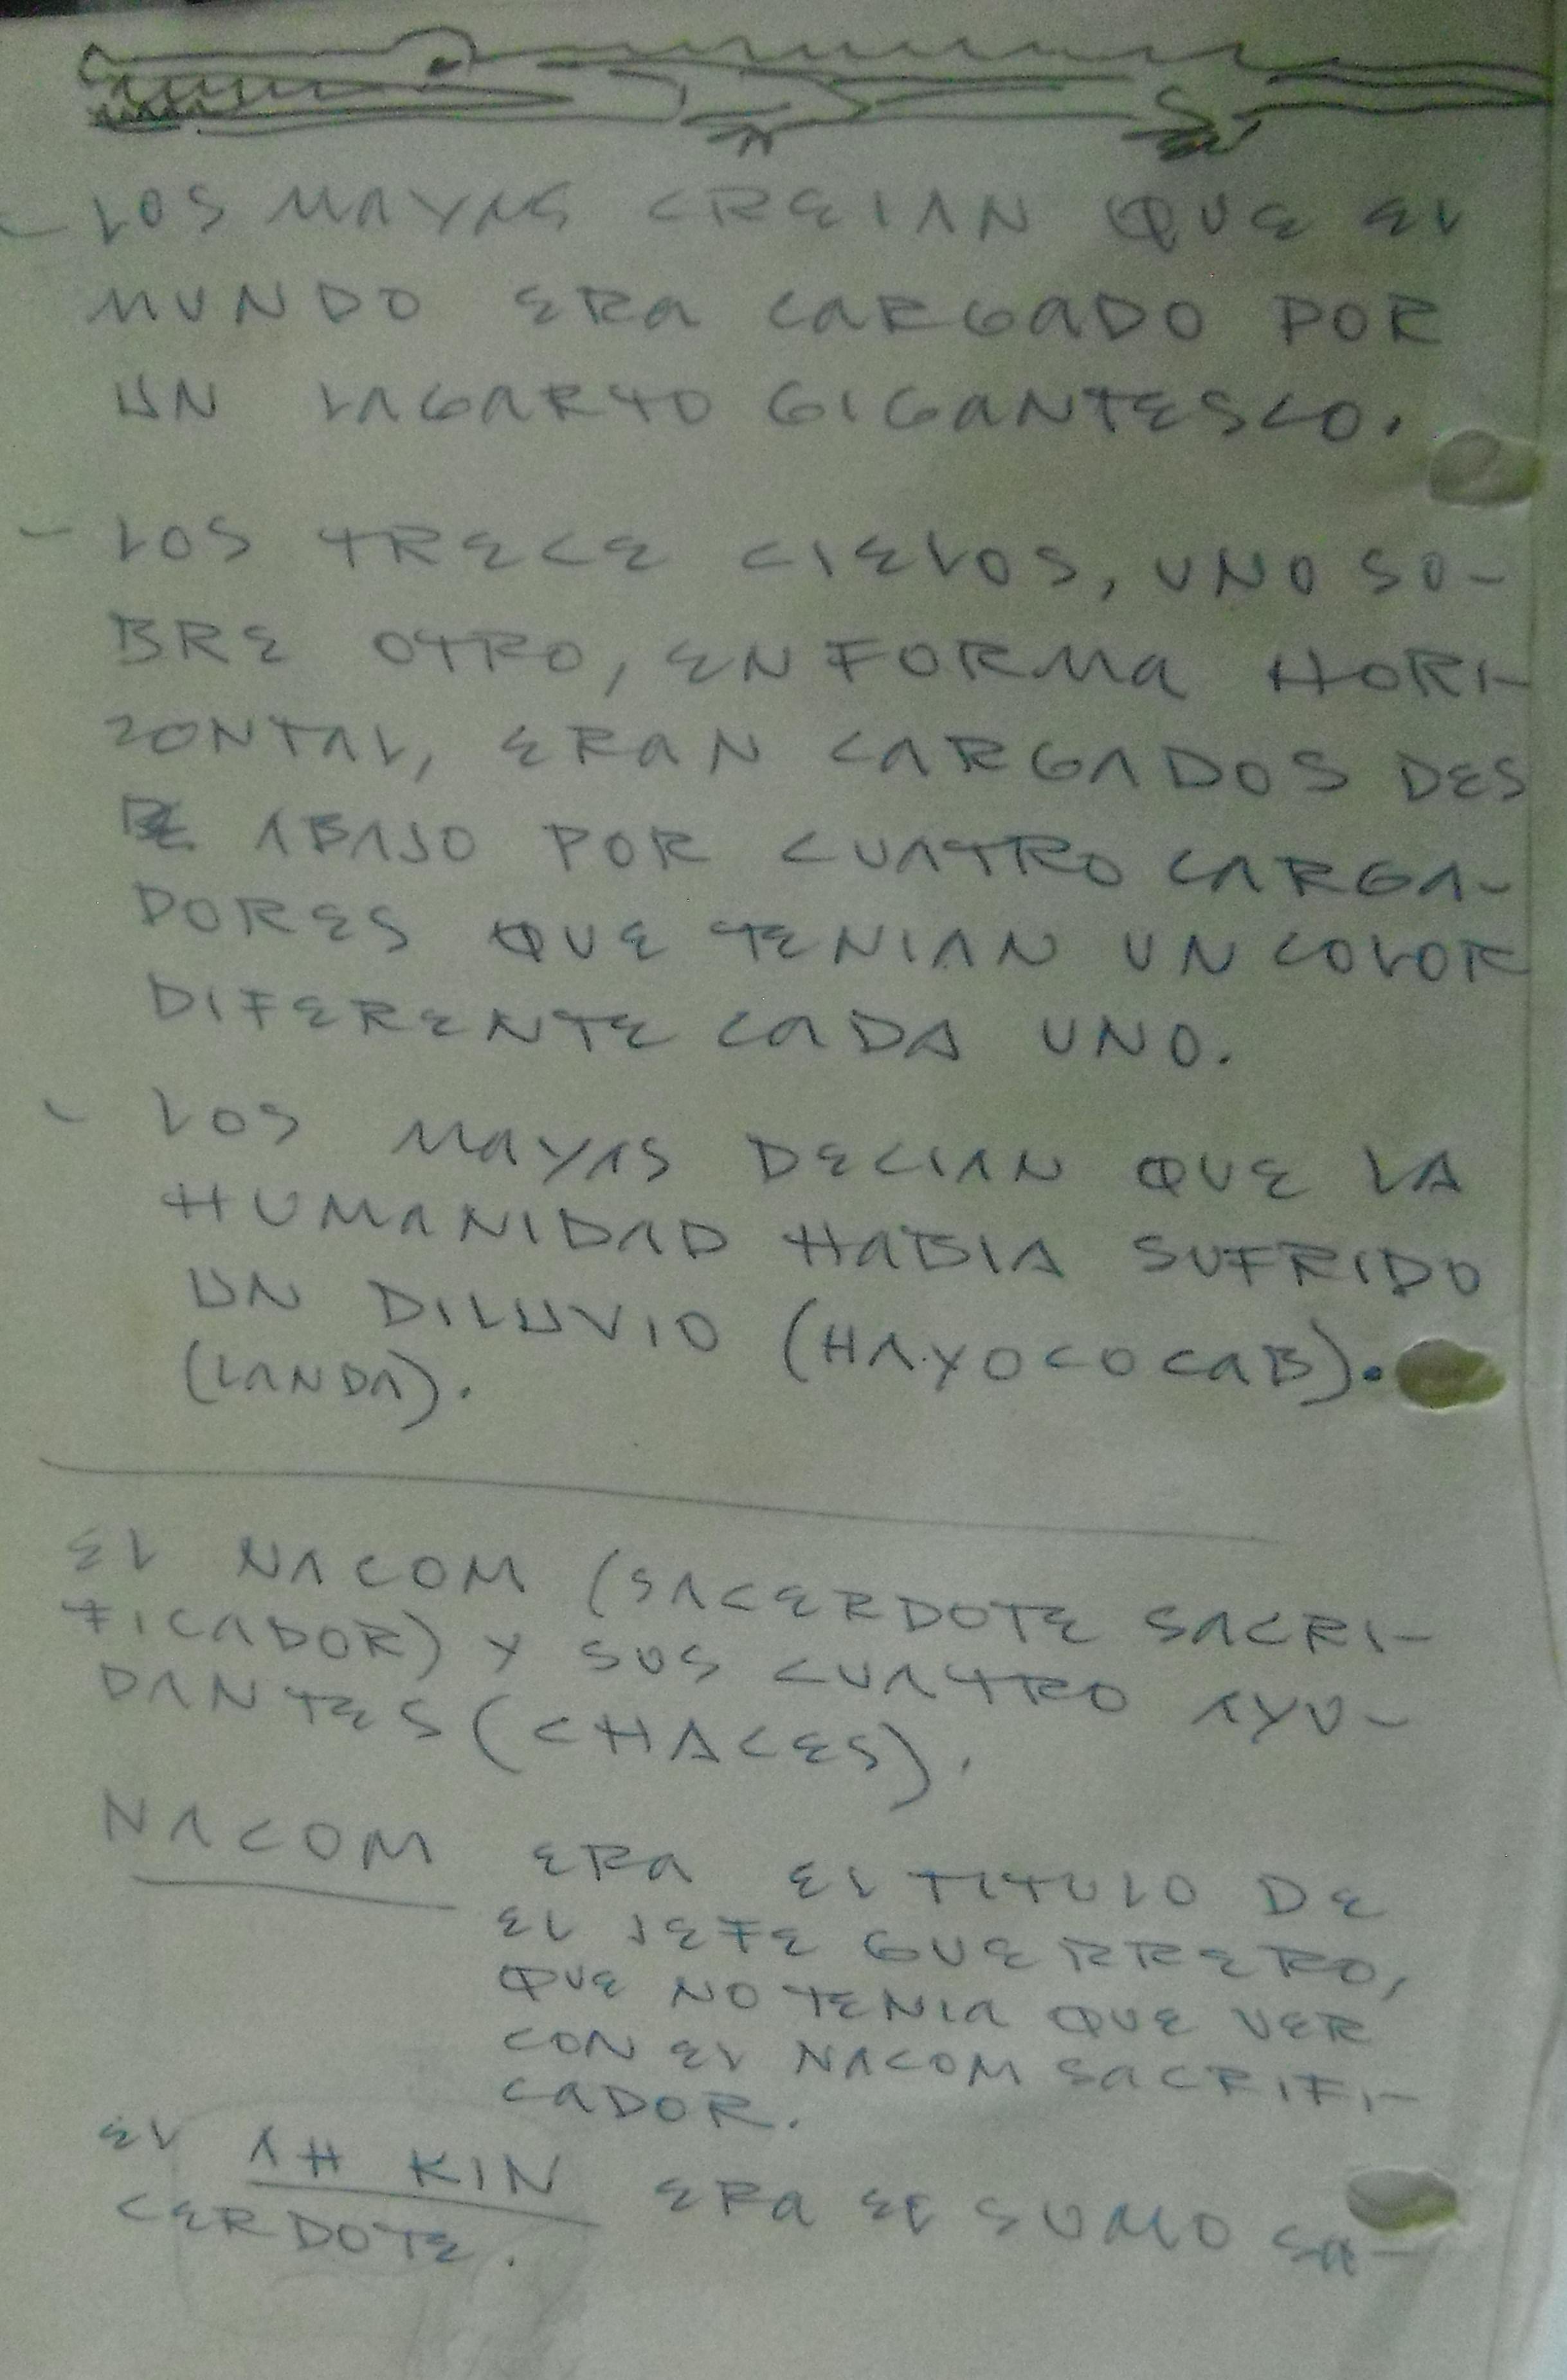 - LOS MAYAS CREIAN QUE EL
MUNDO ERA CARGADO POR
UN LAGARTO GIGANTESCO.
- LOS TRECE CIELOS, UNO SO-
BRE OTRO, EN FORMA HORI-
ZONTAL, ERAN CARGADOS DES
DE ABAJO POR CUATRO CARGA-
DORES QUE TENIAN UN COLOR
DIFERENTE CADA UNO.
- LOS MAYAS DECIAN QUE LA
HUMANIDAD HABIA SUFRIDO
UN DILUVIO (HAYOCOCAB).
(LANDA).
EL NACOM (SACERDOTE SACRI-
FICADOR) Y SUS CUATRO AYU-
DANTES (CHACES).
NACOM ERA EL TITULO DE
EL JEFE GUERRERO,
QUE NO TENIA QUE VER
CON EL NACOM SACRIFI-
CADOR.
EL AH KIN ERA EL SUMO SA-
CERDOTE.